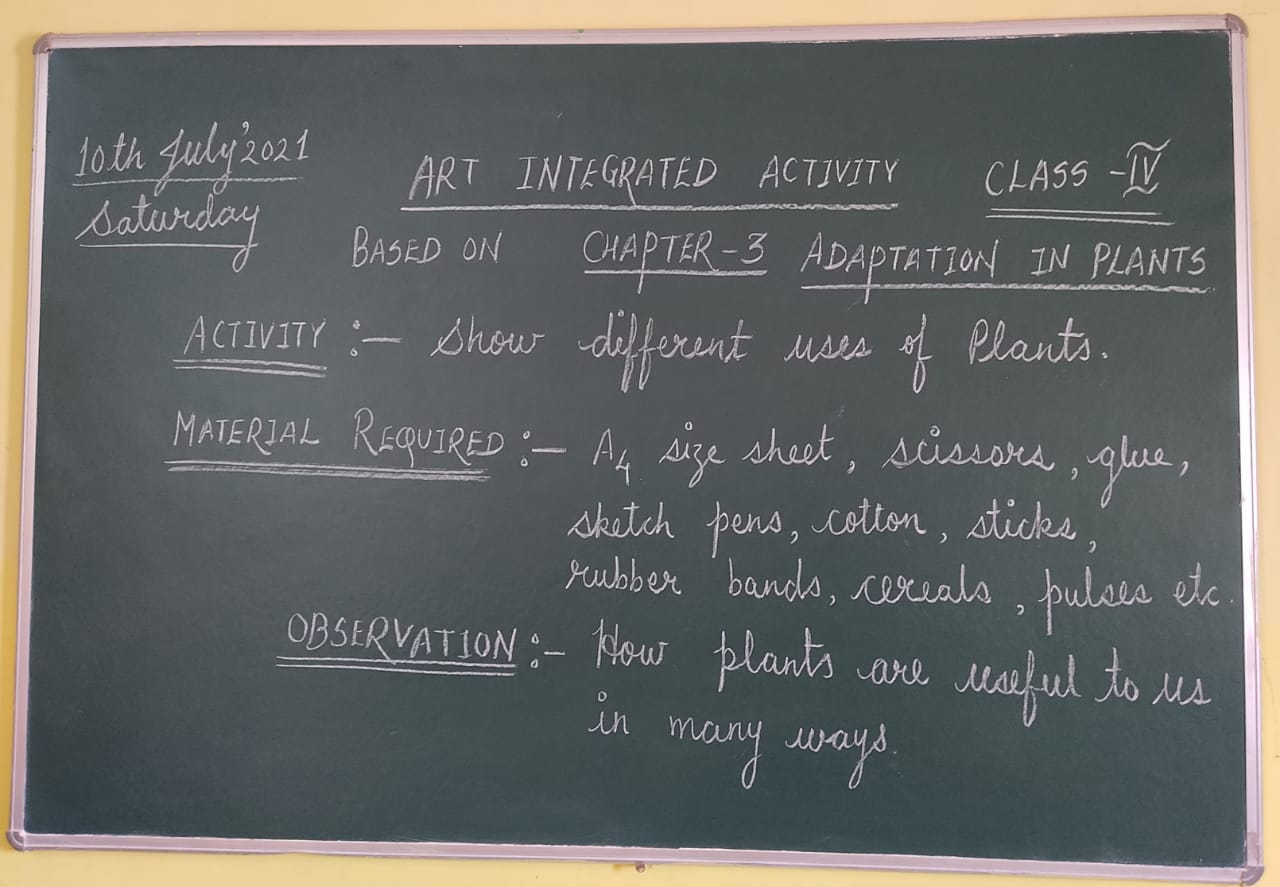 10th July'2021
Saturday
ART INTEGRATED ACTIVITY CLASS - IV
BASED ON CHAPTER-3 ADAPTATION IN PLANTS
ACTIVITY :- Show different uses of Plants.
MATERIAL REQUIRED :- A4 size sheet, scissors, glue,
sketch pens, cotton, sticks,
rubber bands, cereals, pulses etc.
OBSERVATION :- How plants are useful to us
in many ways.